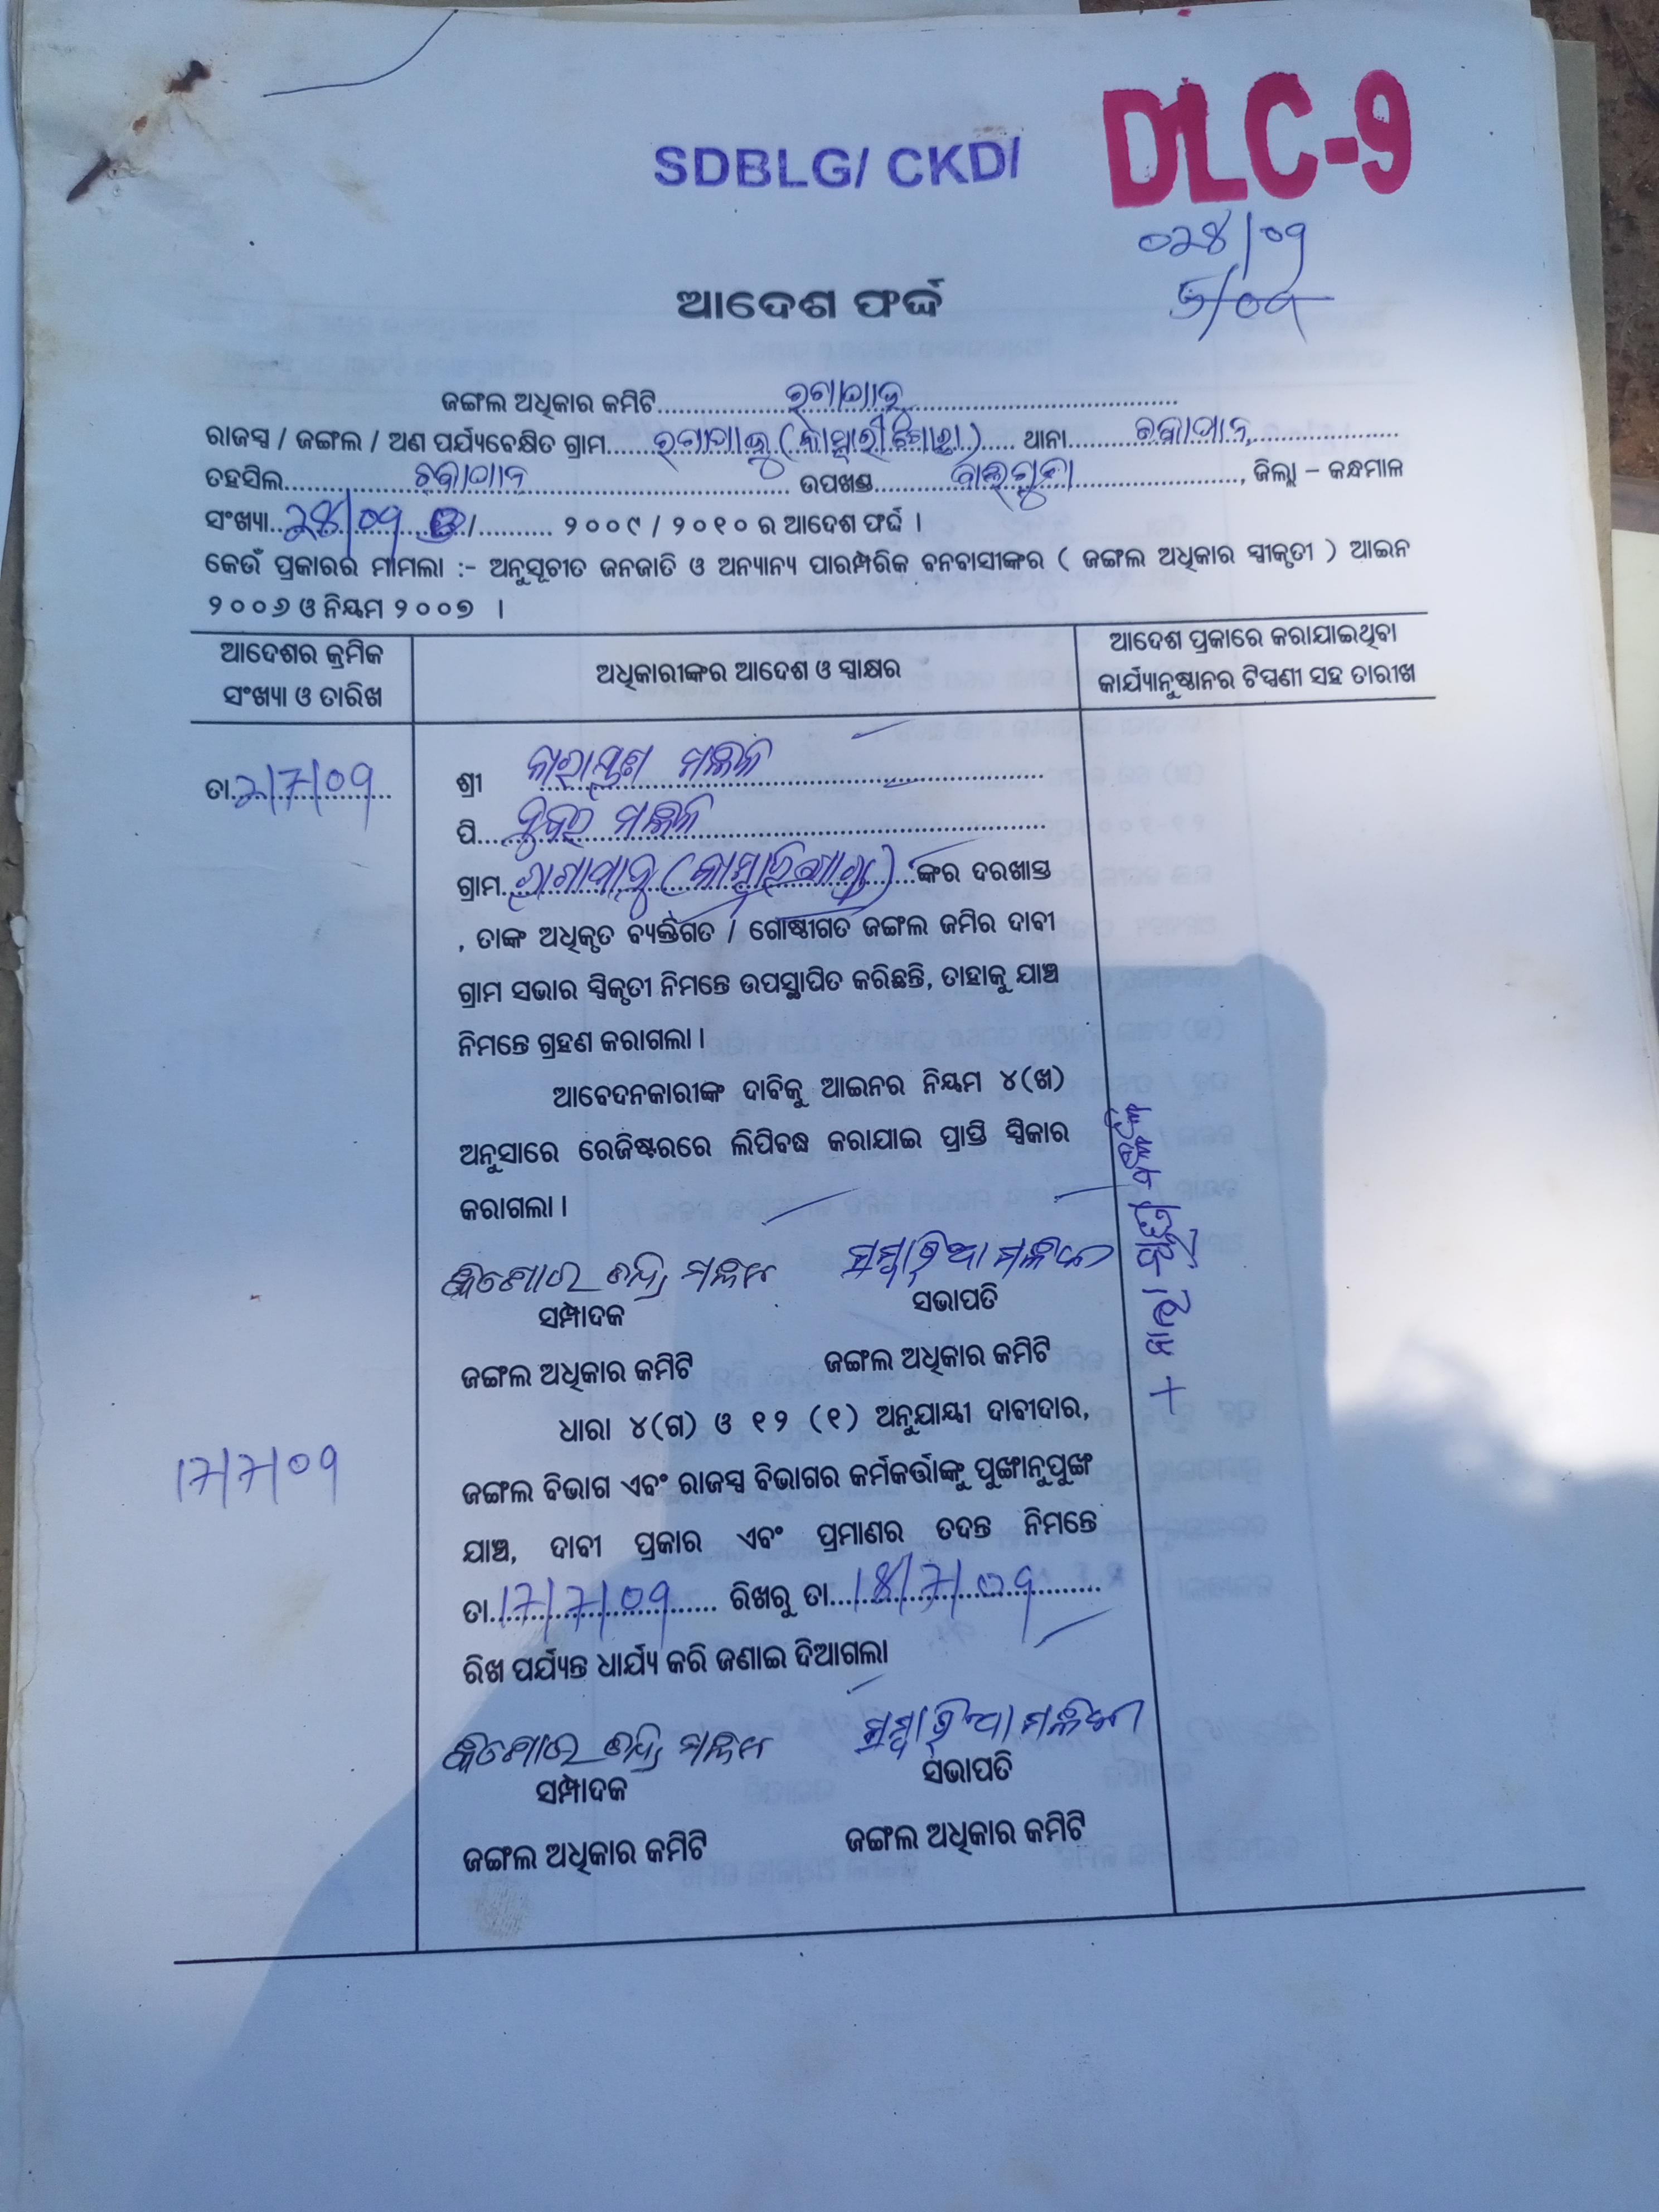 SDBLG/ CKD/
DLC-9
୦୨୪/୦୨
ଆଦେଶ ଫର୍ଦ୍ଦ
ଜଙ୍ଗଲ ଅଧିକାର କମିଟି
ରାଜସ୍ୱ / ଜଙ୍ଗଲ / ଅଣ ପର୍ଯ୍ୟବେକ୍ଷିତ ଗ୍ରାମ ଥାନା
ତହସିଲ ଉପଖଣ୍ଡ , ଜିଲ୍ଲା – କନ୍ଧମାଳ
ସଂଖ୍ୟା / ୨୦୦୯ / ୨୦୧୦ ର ଆଦେଶ ଫର୍ଦ୍ଦ ।
କେଉଁ ପ୍ରକାରର ମାମଲା :- ଅନୁସୂଚୀତ ଜନଜାତି ଓ ଅନ୍ୟାନ୍ୟ ପାରମ୍ପରିକ ବନବାସୀଙ୍କର ( ଜଙ୍ଗଲ ଅଧିକାର ସ୍ୱୀକୃତୀ ) ଆଇନ
୨୦୦୬ ଓ ନିୟମ ୨୦୦୭ ।
ଆଦେଶର କ୍ରମିକ
ସଂଖ୍ୟା ଓ ତାରିଖ
ଅଧିକାରୀଙ୍କର ଆଦେଶ ଓ ସ୍ୱାକ୍ଷର
ଆଦେଶ ପ୍ରକାରେ କରାଯାଇଥିବା
କାର୍ଯ୍ୟାନୁଷ୍ଠାନର ଟିପ୍ପଣୀ ସହ ତାରୀଖ
ତା. 2/7/09
ଶ୍ରୀ ନାରାୟଣ ମଲ୍ଲିକ
ପି. ମଲ୍ଲିକ
ଗ୍ରାମ ଙ୍କର ଦରଖାସ୍ତ
, ତାଙ୍କ ଅଧିକୃତ ବ୍ୟକ୍ତିଗତ / ଗୋଷ୍ଠୀଗତ ଜଙ୍ଗଲ ଜମିର ଦାବୀ
ଗ୍ରାମ ସଭାର ସ୍ୱିକୃତୀ ନିମନ୍ତେ ଉପସ୍ଥାପିତ କରିଛନ୍ତି, ତାହାକୁ ଯାଞ୍ଚ
ନିମନ୍ତେ ଗ୍ରହଣ କରାଗଲା।
ଆବେଦନକାରୀଙ୍କ ଦାବିକୁ ଆଇନର ନିୟମ ୪(ଖ)
ଅନୁସାରେ ରେଜିଷ୍ଟରରେ ଲିପିବଦ୍ଧ କରାଯାଇ ପ୍ରାପ୍ତି ସ୍ୱିକାର
କରାଗଲା।
ସମ୍ପାଦକ ସଭାପତି
ଜଙ୍ଗଲ ଅଧିକାର କମିଟି ଜଙ୍ଗଲ ଅଧିକାର କମିଟି
17/7/09
ଧାରା ୪(ଗ) ଓ ୧୨ (୧) ଅନୁଯାୟୀ ଦାବୀଦାର,
ଜଙ୍ଗଲ ବିଭାଗ ଏବଂ ରାଜସ୍ୱ ବିଭାଗର କର୍ମକର୍ତ୍ତାଙ୍କୁ ପୁଙ୍ଖାନୁପୁଙ୍ଖ
ଯାଞ୍ଚ, ଦାବୀ ପ୍ରକାର ଏବଂ ପ୍ରମାଣର ତଦନ୍ତ ନିମନ୍ତେ
ତା. 17/7/09 ରିଖରୁ ତା. 18/7/09
ରିଖ ପର୍ଯ୍ୟନ୍ତ ଧାର୍ଯ୍ୟ କରି ଜଣାଇ ଦିଆଗଲା
ସମ୍ପାଦକ ସଭାପତି
ଜଙ୍ଗଲ ଅଧିକାର କମିଟି ଜଙ୍ଗଲ ଅଧିକାର କମିଟି